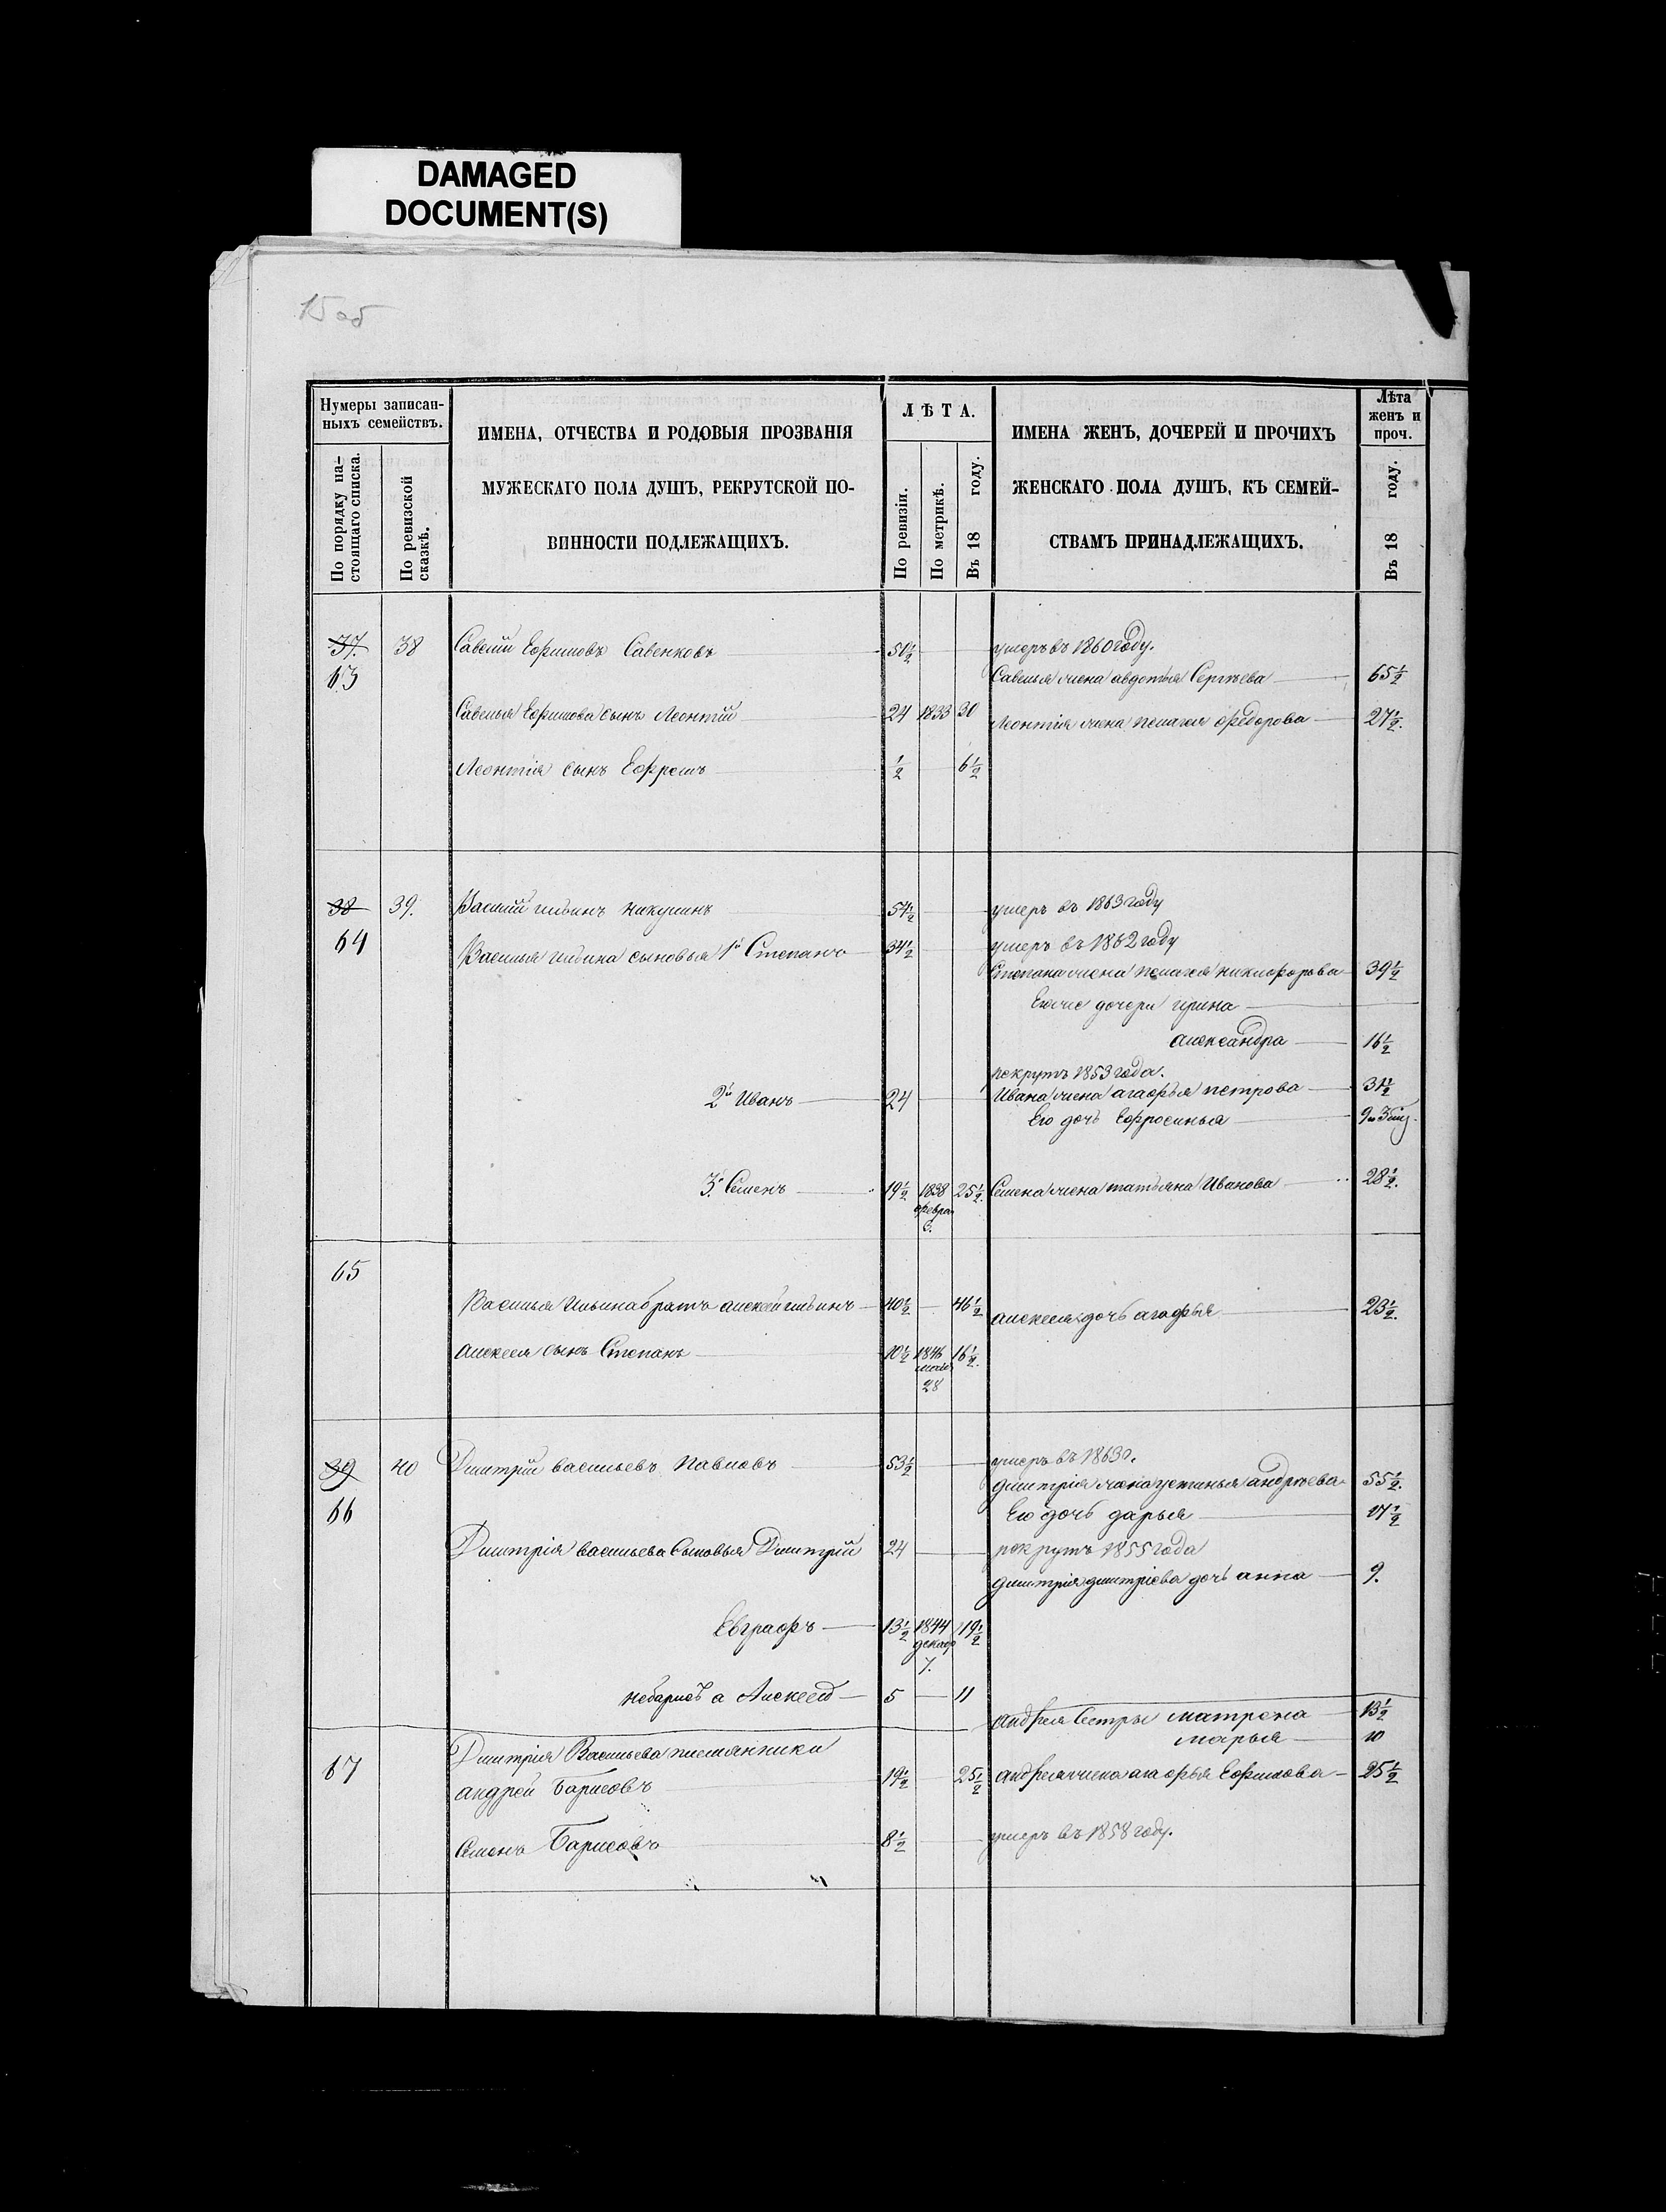 DAMAGED
DOCUMENT(S)
15 об
Нумеры записан-
ныхъ семействъ.
По порядку на-
стоящаго списка.
По ревизской
сказкѣ.
ИМЕНА, ОТЧЕСТВА И РОДОВЫЯ ПРОЗВАНІЯ
МУЖЕСКАГО ПОЛА ДУШЪ, РЕКРУТСКОЙ ПО-
ВИННОСТИ ПОДЛЕЖАЩИХЪ.
ЛѢТА.
По ревизіи.
По метрикѣ.
Въ 18 году.
ИМЕНА ЖЕНЪ, ДОЧЕРЕЙ И ПРОЧИХЪ
ЖЕНСКАГО ПОЛА ДУШЪ, КЪ СЕМЕЙ-
СТВАМЪ ПРИНАДЛЕЖАЩИХЪ.
Лѣта
женъ и
проч.
Въ 18 году.
37. 38 Савелій Ефимовъ Савенковъ 50½ умеръ въ 1860 году.
63 Савелья жена авдотья Сергѣева 65½
Савелья Ефимова сынъ Леонтій 24 1833 30 Леонтія жена пелагея федорова 27½.
Леонтія сынъ Ефремъ ½ 6½
38 39. Василій ильинъ никулинъ 54½ умеръ въ 1863 году
64 Василья ильина сыновья 1й Степанъ 34½ умеръ въ 1862 году
Степана жена пелагея никифорова 39½
дочери ирина
александра 16½
рекрутъ 1853 года.
2й Иванъ 24 Ивана жена агафья петрова 31½
Его дочь Ефросинья
3й Семенъ 19½ 1838 25½. Семена жена татьяна Иванова 28½.
февра
6.
65
Василья Ильина братъ алексей ильинъ 40½ 46½ алексея дочь агафья 23½.
алексея сынъ Степанъ 10½ 1846 16½.
28
39 40 Дмитрій васильевъ павловъ 53½ умеръ въ 1863 г.
дмитрія жена устинья андрѣева 55½.
66 Его дочь дарья 17½
Дмитрія васильева Сыновья Дмитрій 24 рекрутъ 1855 года
дмитрія дмитріева дочь анна 9.
Евграфъ 13½ 1844 19½
декаб
7.
а Алексей 5 11
андрея Сестры матрена 13½
марья 10
67 Дмитрія Васильева племянники
андрей Барисовъ 19½ 25½ андрея жена агафья Ефимова 25½
Семенъ Барисовъ 8½ умеръ въ 1858 году.